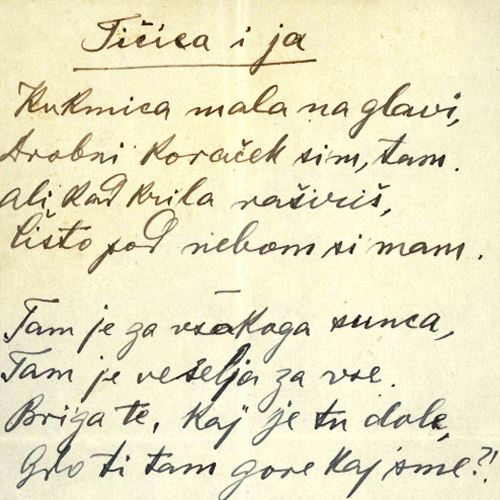 Tičica i ja
Kukmica mala na glavi,
Drobni koraček sim, tam.
ali kad krila raširiš,
Čisto pod nebom si mam.
Tam je za vsākoga sunca,
Tam je veselja za vse.
Briga te, kaj je tu dole,
Gdo ti tam gore kaj sme?!